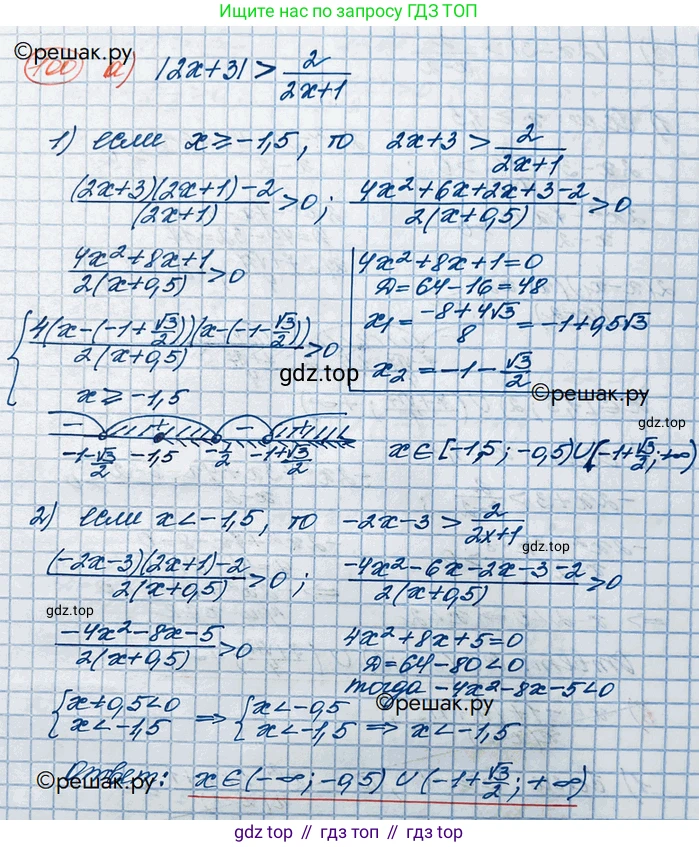 Ищет ответы по запросу ГДЗ ТОП
©решак.ру
100 а) |2x+3| > 2/(2x+1)
1) если x ⩾ -1,5, то 2x+3 > 2/(2x+1)
((2x+3)(2x+1)-2)/(2x+1) > 0; (4x²+6x+2x+3-2)/(2(x+0,5)) > 0
(4x²+8x+1)/(2(x+0,5)) > 0
4x²+8x+1=0
D=64-16=48
x₁ = (-8+4√3)/8 = -1+0,5√3
{ 4(x-(-1+√3/2))(x-(-1-√3/2))/(2(x+0,5)) > 0
гдз.top
x₂ = -1-√3/2
x ⩾ -1,5
©решак.ру
гдз.top
− + − +
-1-√3/2 -1,5 -1/2 -1+√3/2 x∈[-1,5; -0,5)∪(-1+√3/2; +∞)
2) если x<-1,5, то -2x-3 > 2/(2x+1)
гдз.top
((-2x-3)(2x+1)-2)/(2(x+0,5)) > 0; (-4x²-6x-2x-3-2)/(2(x+0,5)) > 0
гдз.top
(-4x²-8x-5)/(2(x+0,5)) > 0
4x²+8x+5=0
D=64-80<0
тогда -4x²-8x-5<0
{ x+0,5<0 ⇒ { x<-0,5
x<-1,5 x<-1,5 ⇒ x<-1,5
©решак.ру
Ответ: x∈(-∞; -0,5)∪(-1+√3/2; +∞)
©решак.ру
гдз.top // гдз.топ // gdz.top